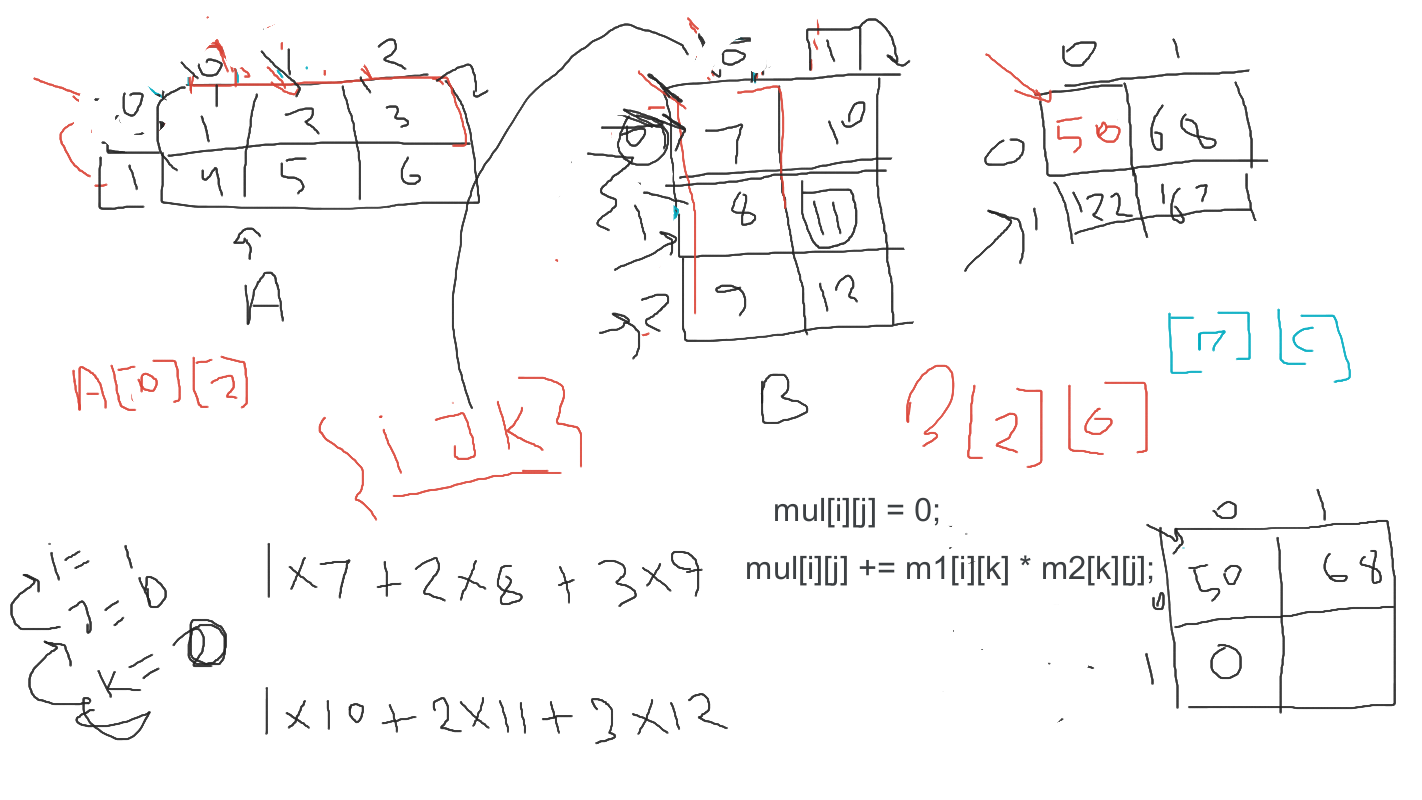 0 1 2
0 1 2 3
1 4 5 6
A
0 1
0 7 10
1 8 11
2 9 12
B
0 1
0 50 68
1 122 167
A[0][2]
{i j k}
B[2][0]
[r][c]
mul[i][j] = 0;
mul[i][j] += m1[i][k] * m2[k][j];
i = 1
j = 0
k =
1x7 + 2x8 + 3x9
1x10 + 2x11 + 3x12
0 1
0 50 68
1 0